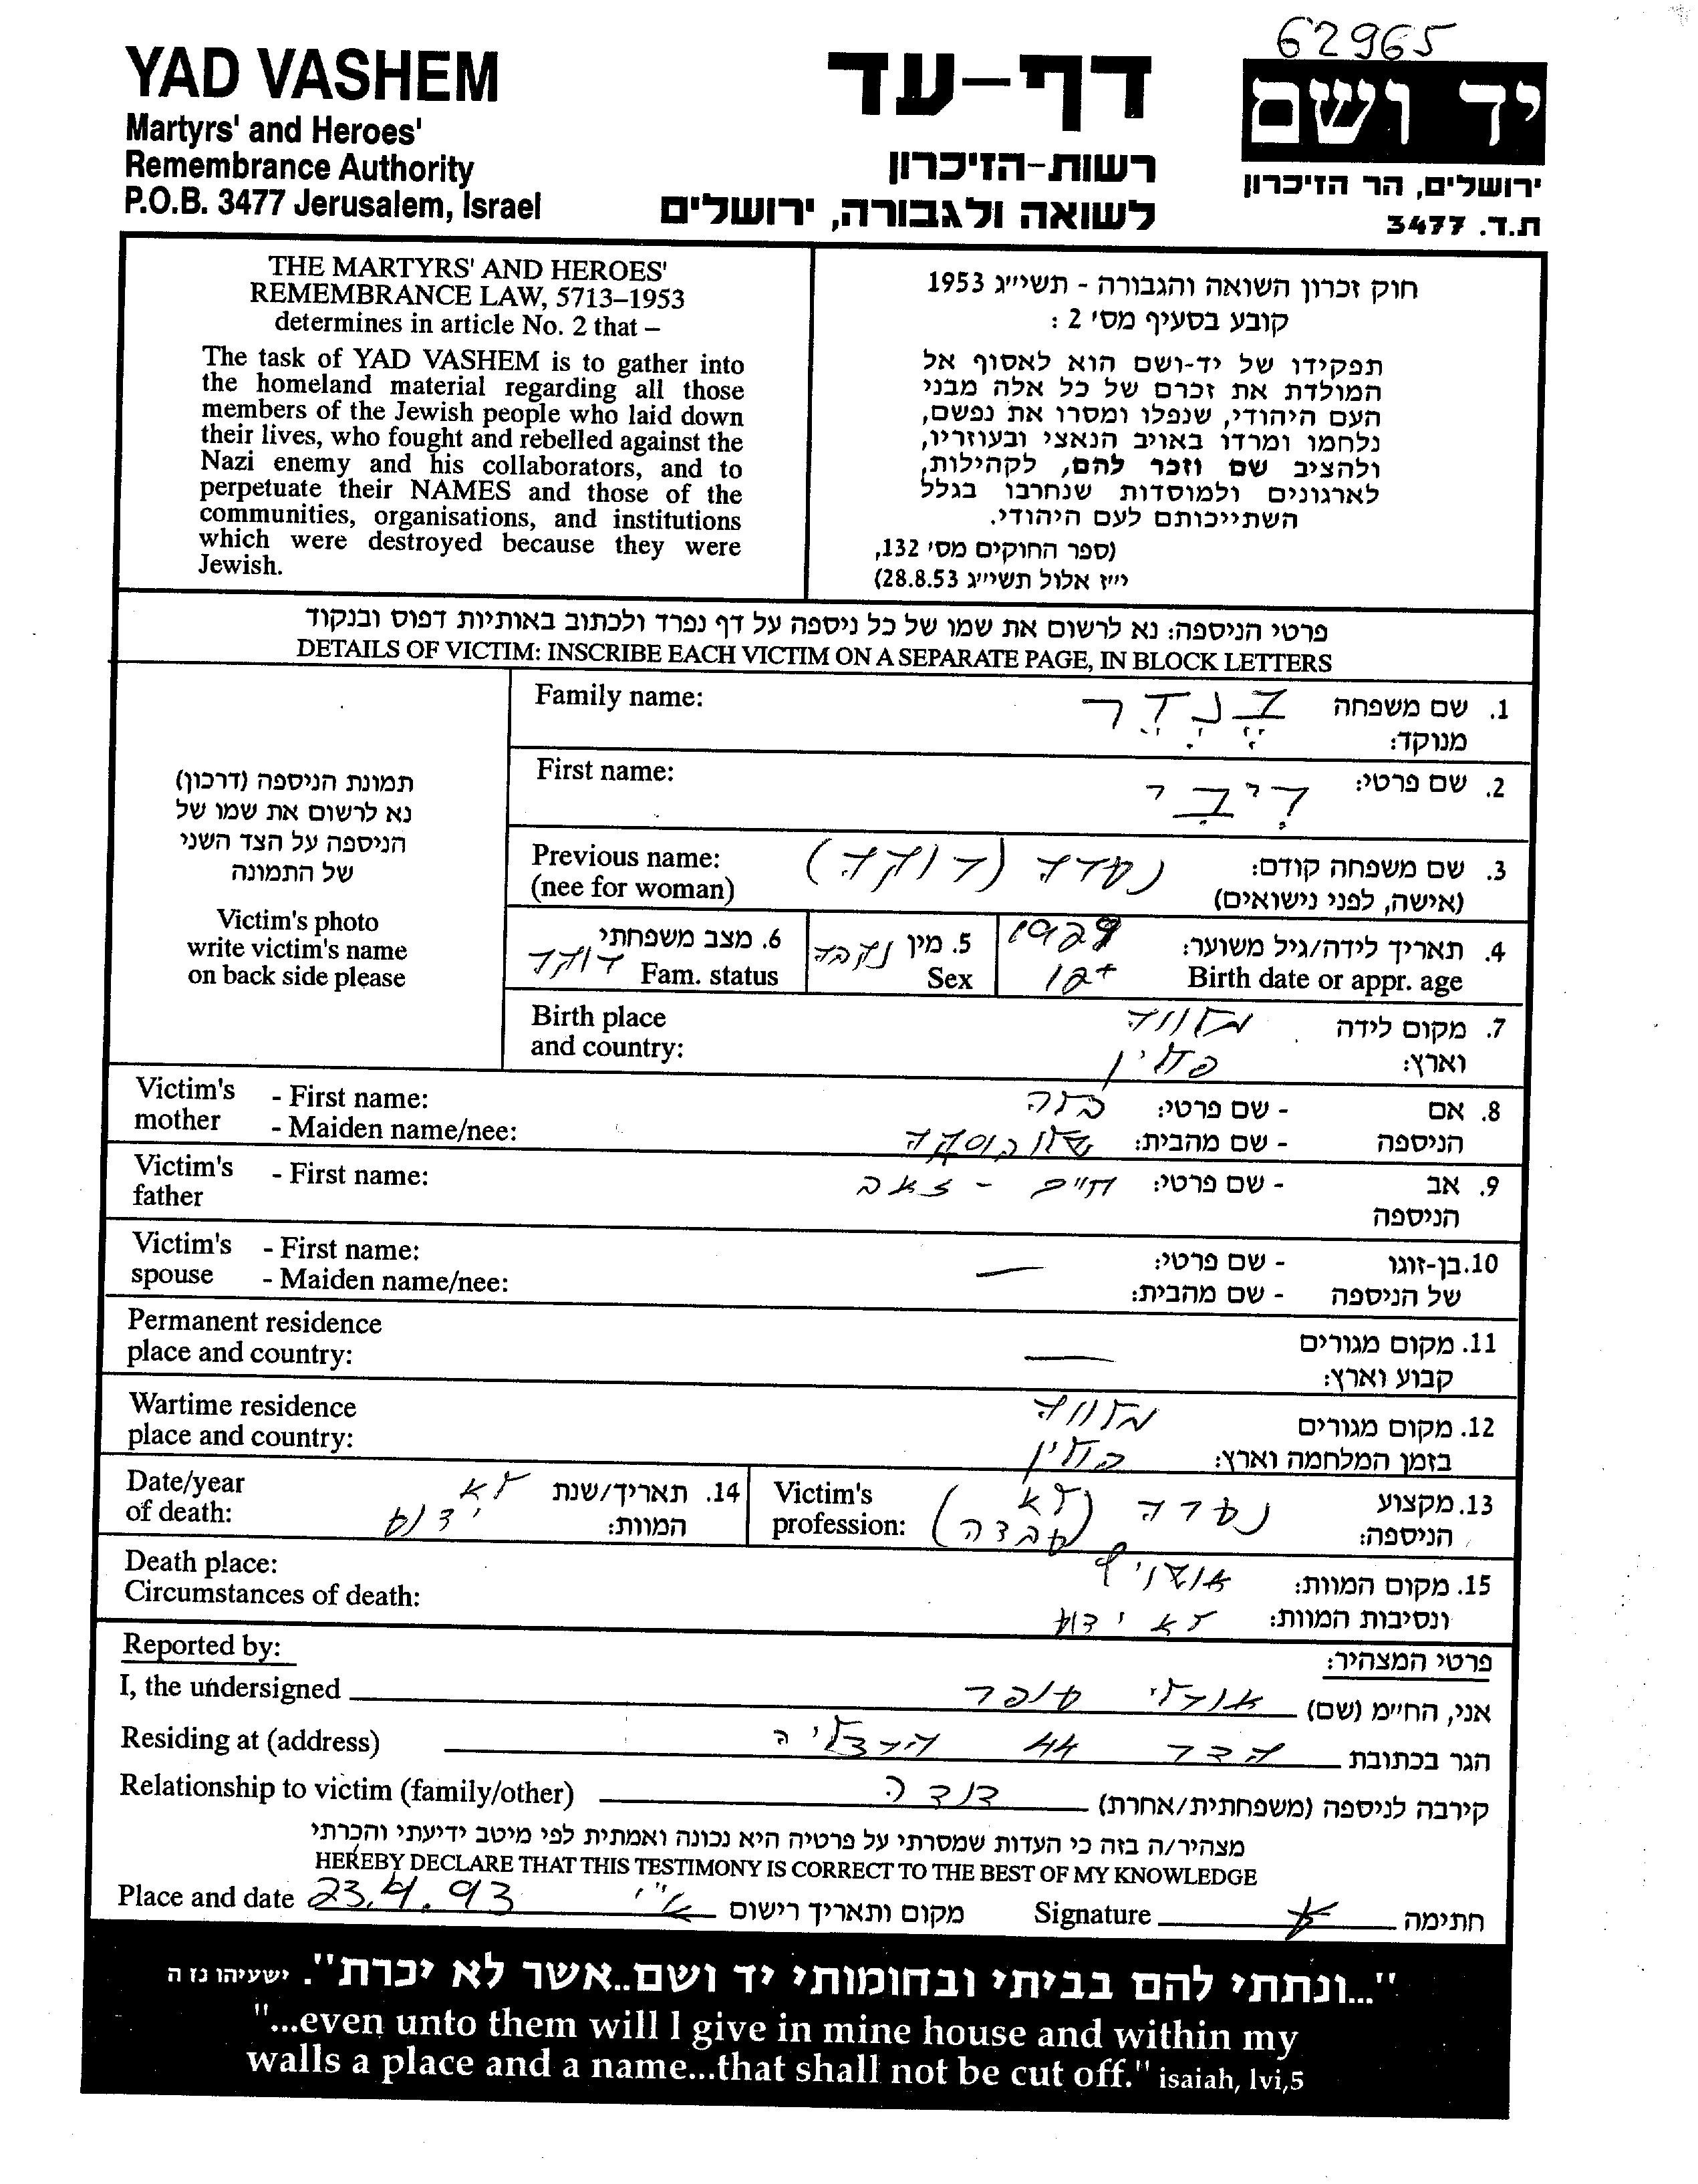 62965
YAD VASHEM
Martyrs' and Heroes'
Remembrance Authority
P.O.B. 3477 Jerusalem, Israel
דף-עד
רשות-הזיכרון
לשואה ולגבורה, ירושלים
יד ושם
ירושלים, הר הזיכרון
ת.ד. 3477
THE MARTYRS' AND HEROES'
REMEMBRANCE LAW, 5713–1953
determines in article No. 2 that –
The task of YAD VASHEM is to gather into
the homeland material regarding all those
members of the Jewish people who laid down
their lives, who fought and rebelled against the
Nazi enemy and his collaborators, and to
perpetuate their NAMES and those of the
communities, organisations, and institutions
which were destroyed because they were
Jewish.
חוק זכרון השואה והגבורה - תשי״ג 1953
קובע בסעיף מס׳ 2 :
תפקידו של יד-ושם הוא לאסוף אל
המולדת את זכרם של כל אלה מבני
העם היהודי, שנפלו ומסרו את נפשם,
נלחמו ומרדו באויב הנאצי ובעוזריו,
ולהציב שם וזכר להם, לקהילות,
לארגונים ולמוסדות שנחרבו בגלל
השתייכותם לעם היהודי.
(ספר החוקים מס׳ 132,
י״ז אלול תשי״ג 28.8.53)
פרטי הניספה: נא לרשום את שמו של כל ניספה על דף נפרד ולכתוב באותיות דפוס ובנקוד
DETAILS OF VICTIM: INSCRIBE EACH VICTIM ON A SEPARATE PAGE, IN BLOCK LETTERS
תמונת הניספה (דרכון)
נא לרשום את שמו של
הניספה על הצד השני
של התמונה
Victim's photo
write victim's name
on back side please
Family name: בֶּנְדֶר 1. שם משפחה
מנוקד:
First name: דִיבִי 2. שם פרטי:
Previous name: נערה (רווקה) 3. שם משפחה קודם:
(nee for woman) (אישה, לפני נישואים)
6. מצב משפחתי רווקה Fam. status
5. מין נקבה Sex
4. תאריך לידה/גיל משוער: 1929
Birth date or appr. age 12+
Birth place מלווה 7. מקום לידה
and country: פולין וארץ:
Victim's - First name: - שם פרטי: 8. אם
mother - Maiden name/nee: - שם מהבית: הניספה
Victim's - First name: חיים - זאב - שם פרטי: 9. אב
father הניספה
Victim's - First name: — - שם פרטי: 10. בן-זוגו
spouse - Maiden name/nee: - שם מהבית: של הניספה
Permanent residence 11. מקום מגורים
place and country: — קבוע וארץ:
Wartime residence מלווה 12. מקום מגורים
place and country: פולין בזמן המלחמה וארץ:
Date/year לא 14. תאריך/שנת
of death: ידוע המוות:
Victim's נערה (לא 13. מקצוע
profession: עבדה) הניספה:
Death place: אושויץ 15. מקום המוות:
Circumstances of death: לא ידוע ונסיבות המוות:
Reported by: פרטי המצהיר:
I, the undersigned אורלי עופר אני, החי״מ (שם)
Residing at (address) הדר 44 הרצליה הגר בכתובת
Relationship to victim (family/other) דודה קירבה לניספה (משפחתית/אחרת)
מצהיר/ה בזה כי העדות שמסרתי על פרטיה היא נכונה ואמתית לפי מיטב ידיעתי והכרתי
HEREBY DECLARE THAT THIS TESTIMONY IS CORRECT TO THE BEST OF MY KNOWLEDGE
Place and date 23.4.93 מקום ותאריך רישום Signature חתימה
"...ונתתי להם בביתי ובחומותי יד ושם..אשר לא יכרת". ישעיהו נז ה
"...even unto them will I give in mine house and within my
walls a place and a name...that shall not be cut off." isaiah, lvi,5